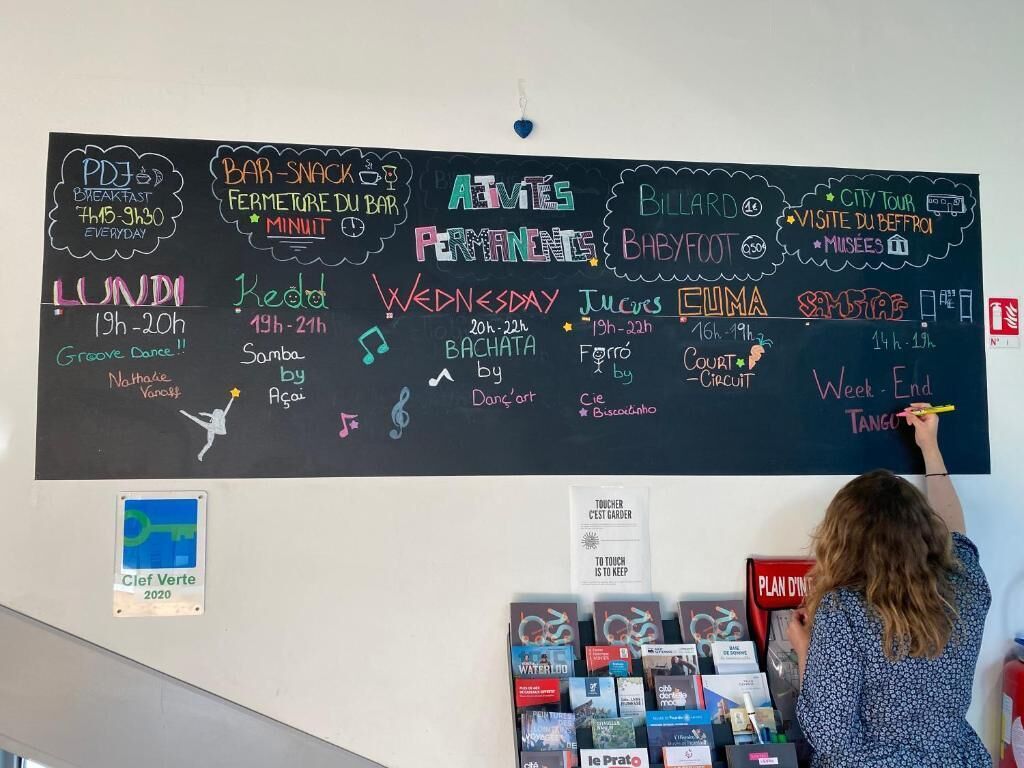 PDJ
BREAKFAST
7h15-9h30
EVERYDAY
BAR-SNACK
FERMETURE DU BAR
MINUIT
ACTIVITÉS
PERMANENTES
BILLARD 1€
BABYFOOT 0,50€
CITY TOUR
VISITE DU BEFFROI
MUSÉES
LUNDI
19h-20h
Groove Dance!!
Nathalie
Vanoff
Kedd
19h-21h
Samba
by
Açai
WEDNESDAY
20h-22h
BACHATA
by
Danç'art
Jueves
19h-22h
Forró
by
Cie
Biscoitinho
CUMA
16h-19h
COURT
-CIRCUIT
SAMSTAG
14h-19h
Week-End
TANGO
N°
Clef Verte
2020
TOUCHER
C'EST GARDER
TO TOUCH
IS TO KEEP
PLAN D'IN
WATERLOO
BAIE
DE SOMME
cité
dentelle
mode
le Prato